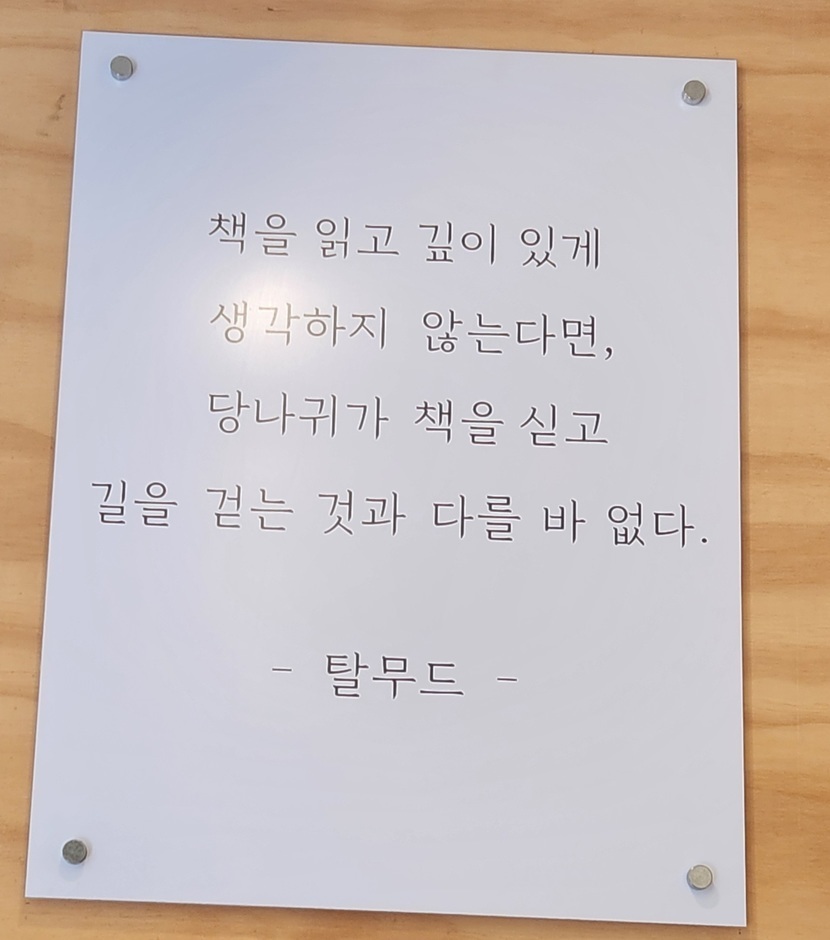 책을 읽고 깊이 있게
생각하지 않는다면,
당나귀가 책을 싣고
길을 걷는 것과 다를 바 없다.
- 탈무드 -